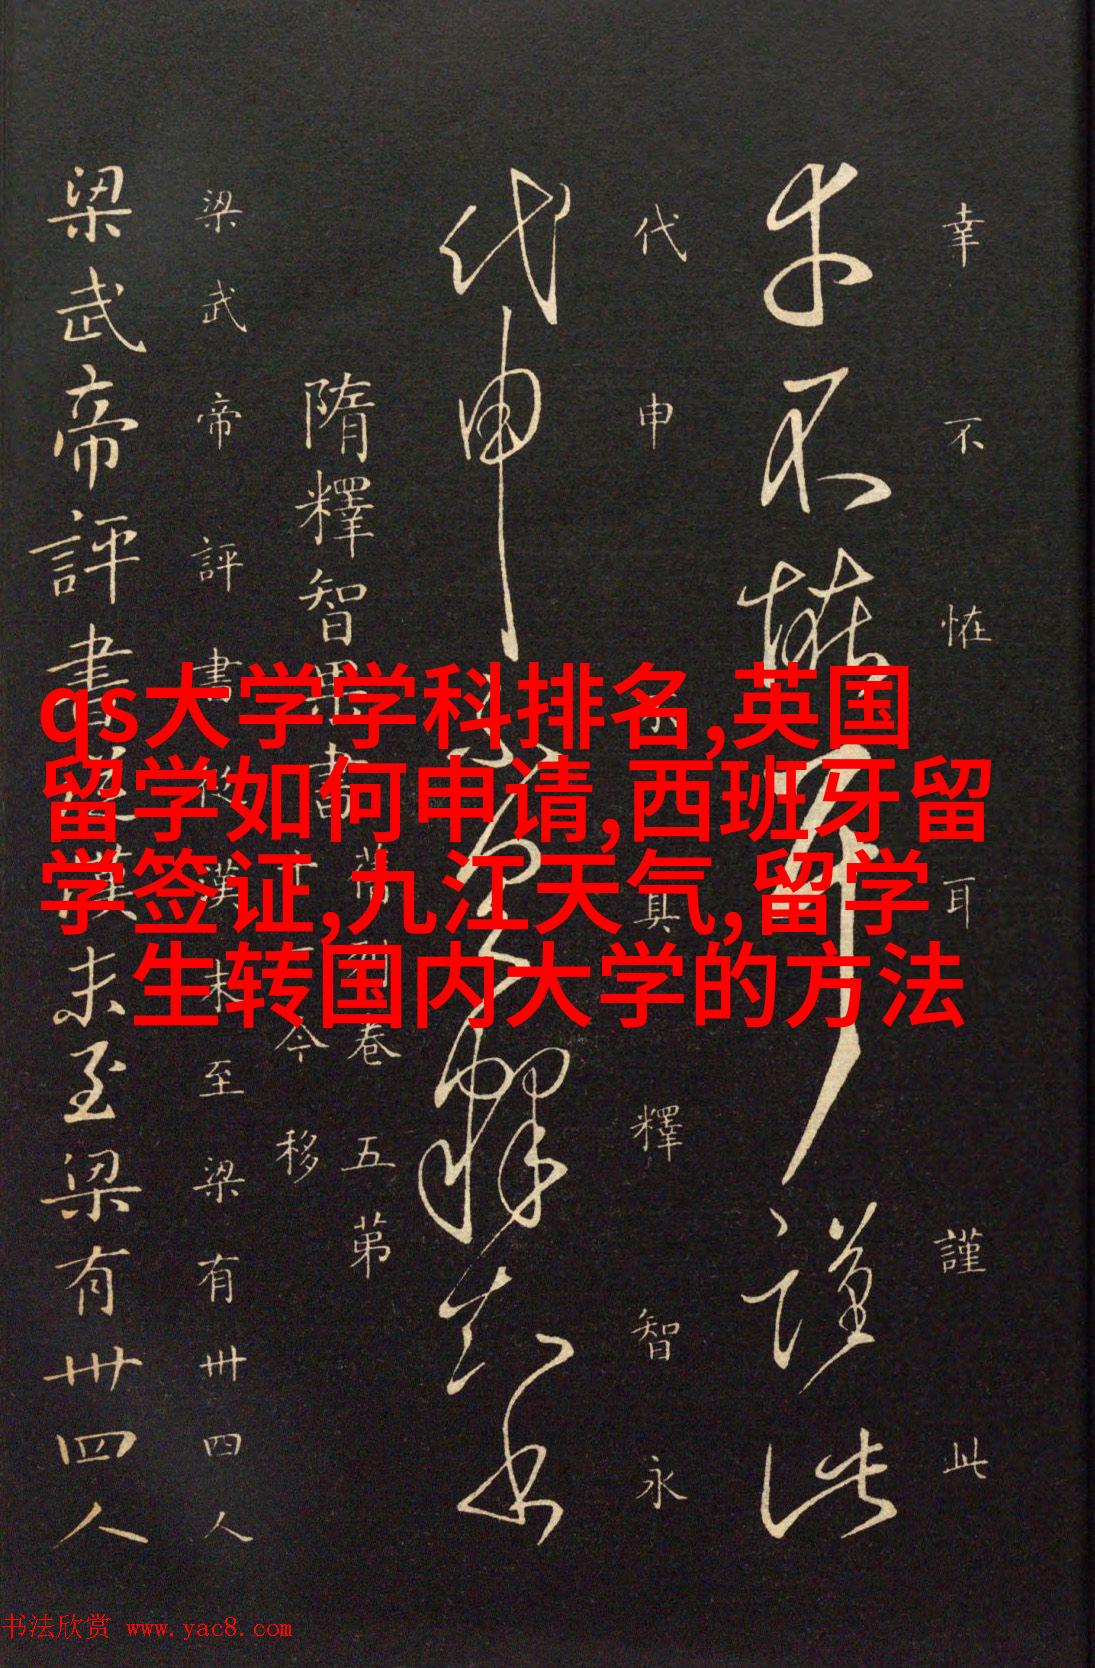 幸不怪耳謹此
幸不恠耳謹此
代申
代申 具釋智永
隋釋智果書
蕭列卷五第
今移
梁武帝評書從漢末至梁有卅四人
梁武帝評書從漢末至梁有卅四人
qs大学学科排名,英国
留学如何申请,西班牙留
学签证,九江天气,留学
生转国内大学的方法
书法欣赏 www.yac8.com